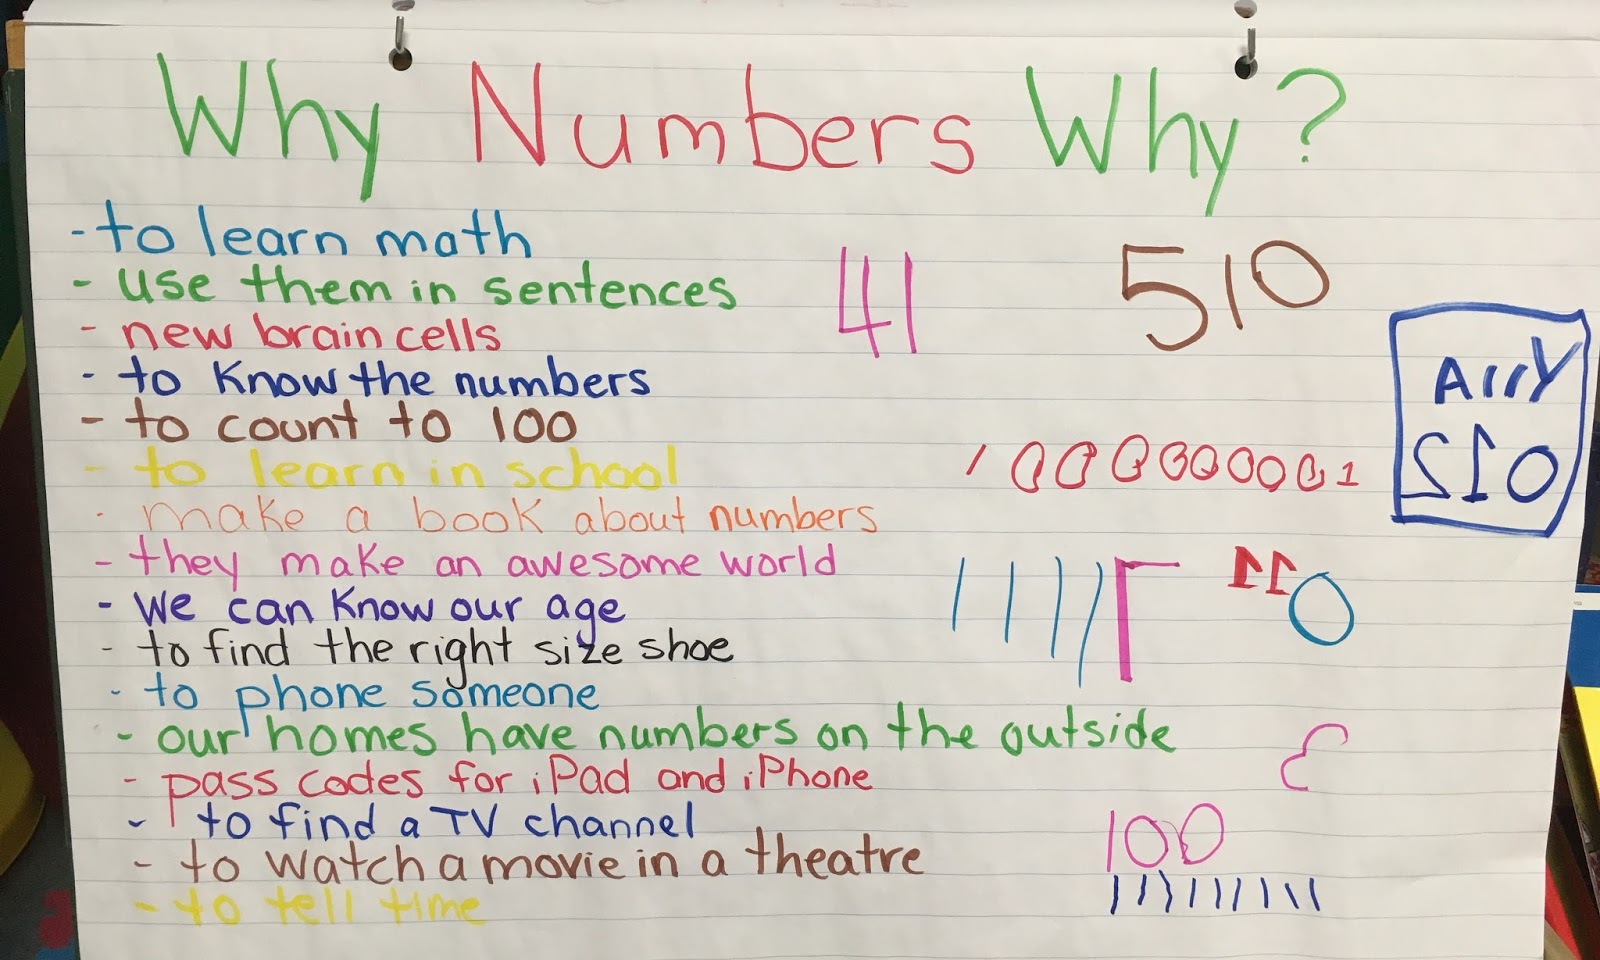 Why Numbers Why?
- to learn math
- use them in sentences
- new brain cells
- to know the numbers
- to count to 100
- to learn in school
- make a book about numbers
- they make an awesome world
- we can know our age
- to find the right size shoe
- to phone someone
- our homes have numbers on the outside
- pass codes for iPad and iPhone
- to find a TV channel
- to watch a movie in a theatre
- to tell time
41
510
11
0
100